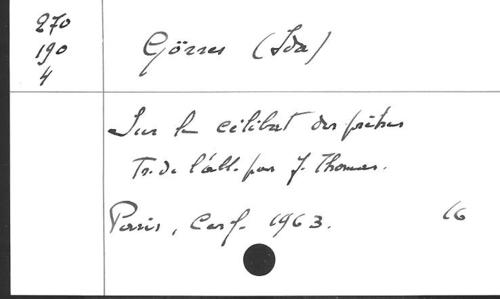 270
190
4
Görres (Ida)
Sur le célibat des prêtres
Tr. de l'all. par J. Thomas.
Paris, Cerf. 1963. 16